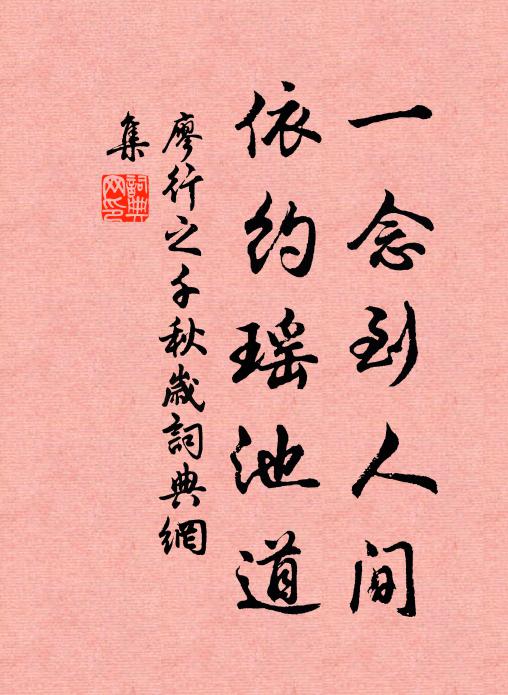 一念到人间
依约瑶池道
廖行之千秋岁詞典網
集
詞典
网印